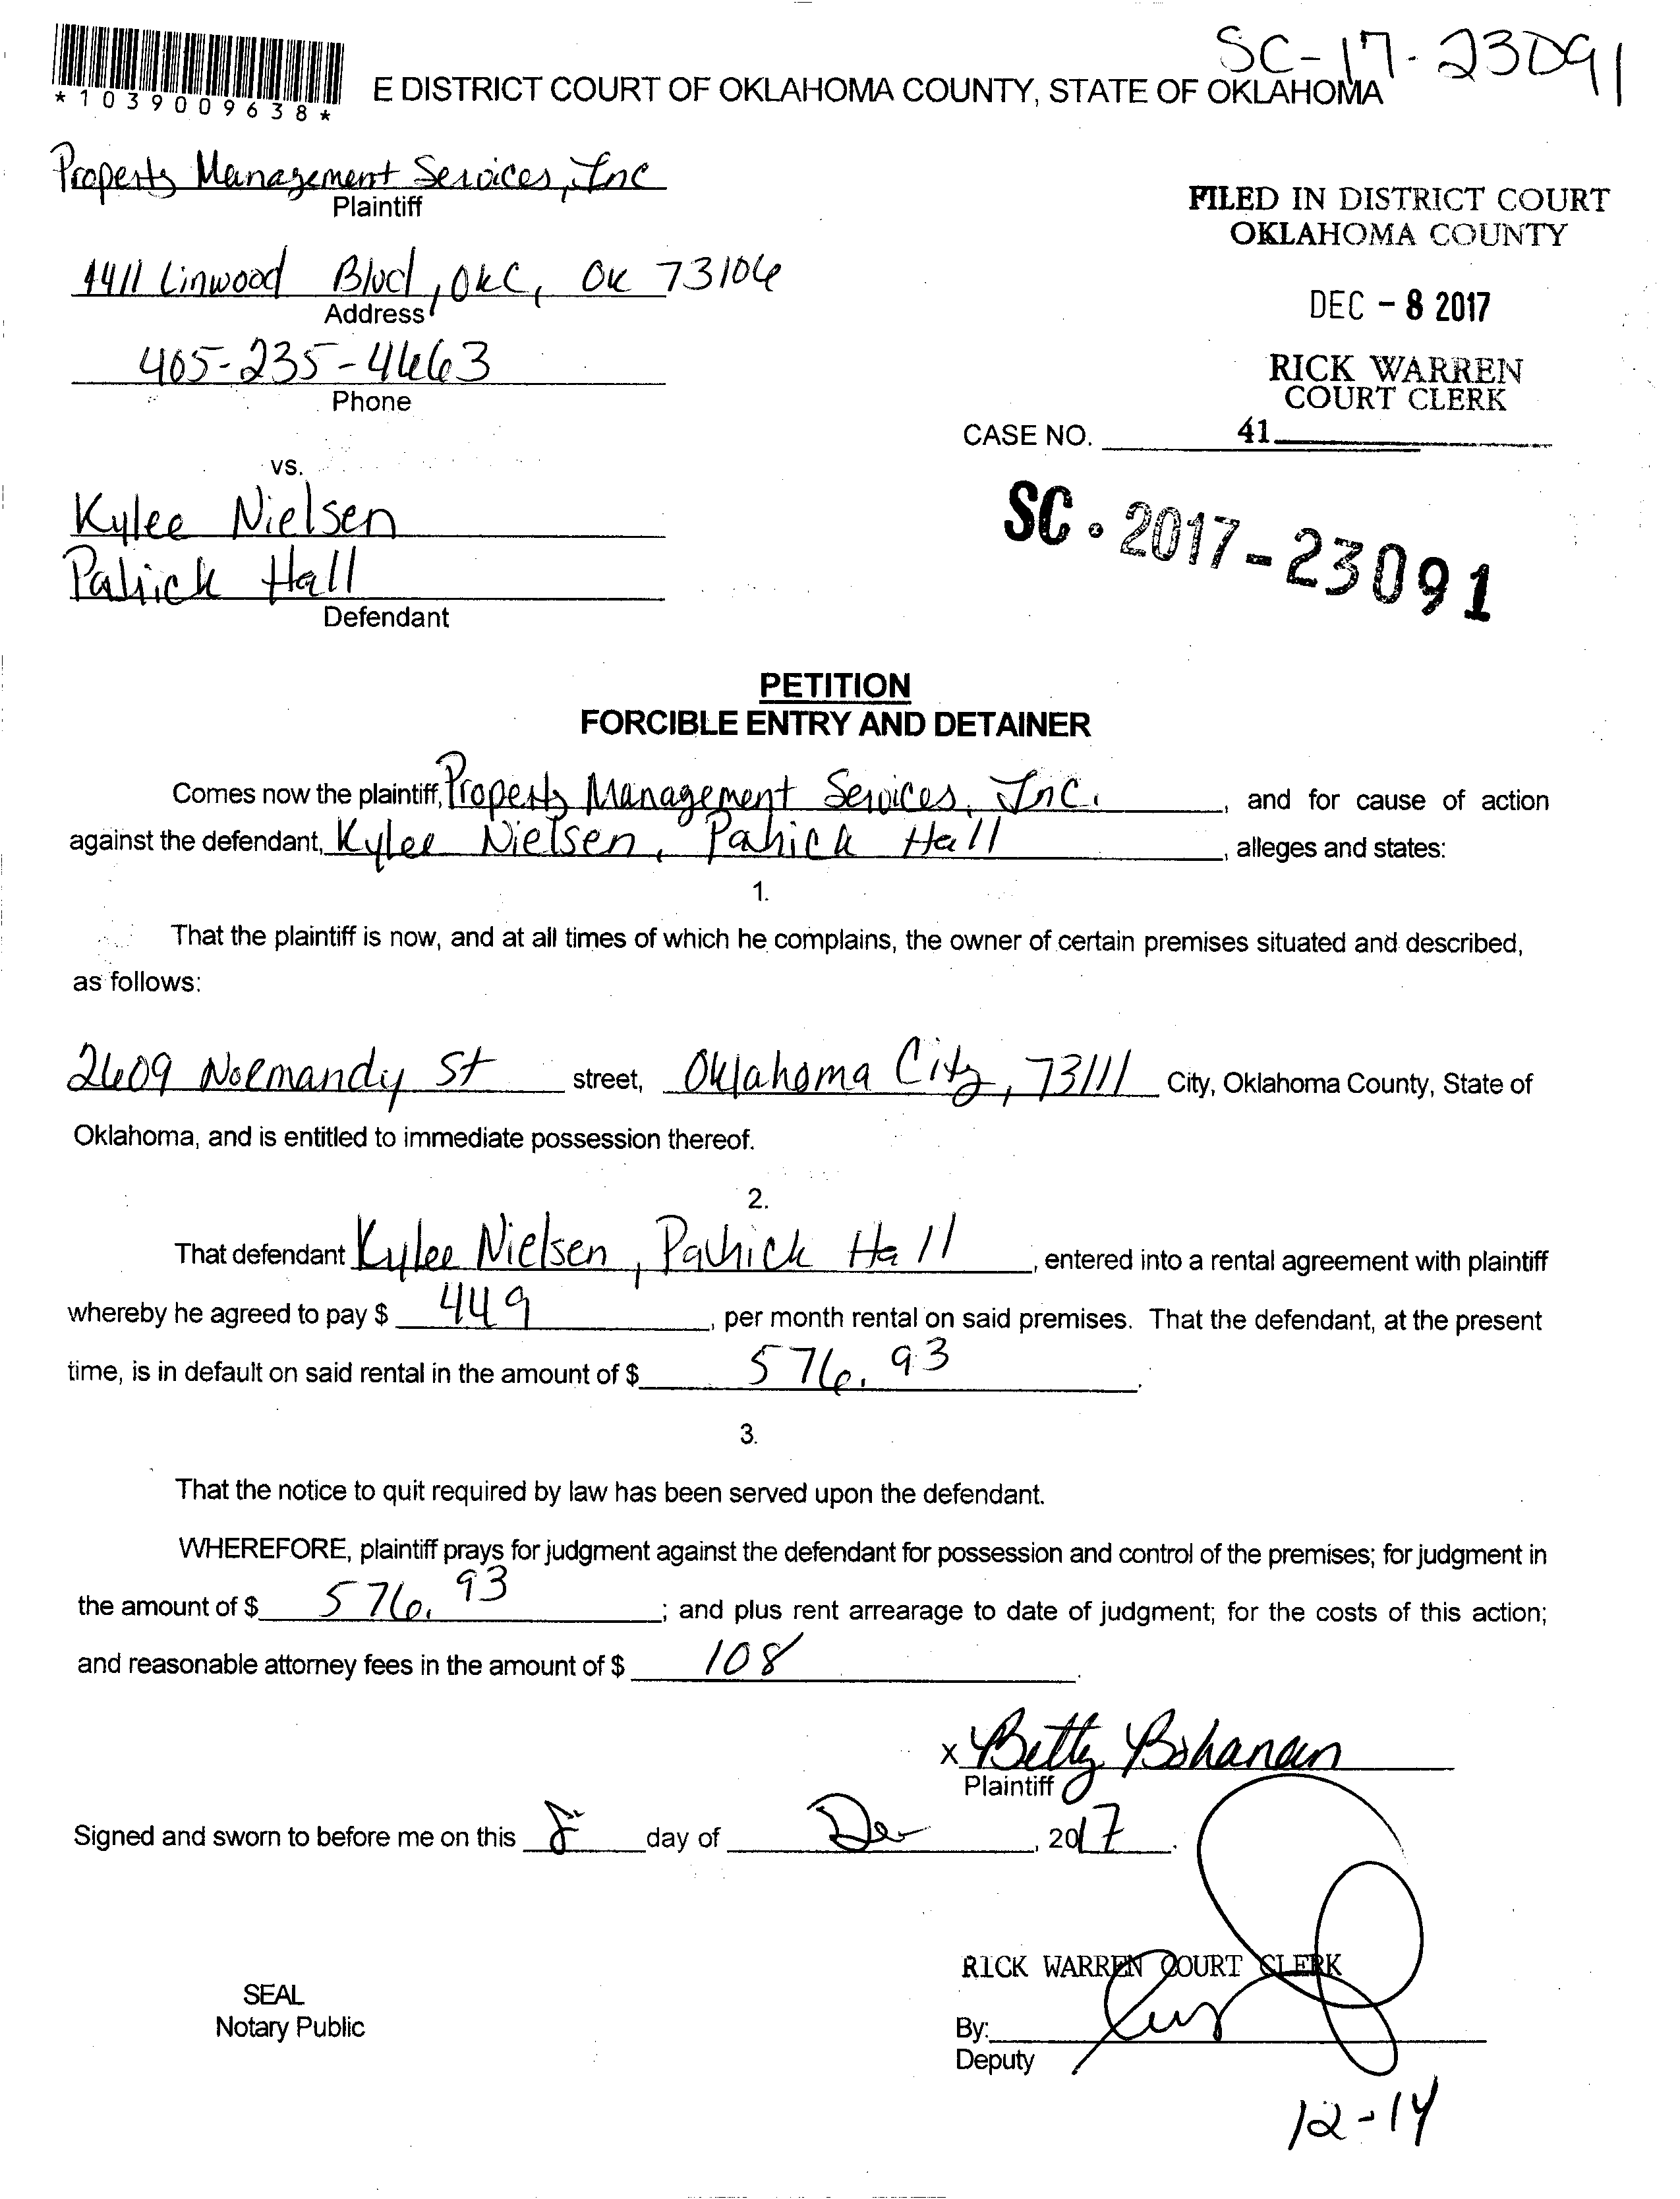 SC-17-23091
*1039009638*
E DISTRICT COURT OF OKLAHOMA COUNTY, STATE OF OKLAHOMA
Property Management Services, Inc
Plaintiff
FILED IN DISTRICT COURT
OKLAHOMA COUNTY
1411 Linwood Blvd, OKC, OK 73106
Address
DEC - 8 2017
405-235-4663
Phone
RICK WARREN
COURT CLERK
CASE NO. 41
vs.
Kylee Nielsen
Patrick Hall
Defendant
SC - 2017-23091
PETITION
FORCIBLE ENTRY AND DETAINER
Comes now the plaintiff, Property Management Services, Inc. , and for cause of action
against the defendant, Kylee Nielsen, Patrick Hall , alleges and states:
1.
That the plaintiff is now, and at all times of which he complains, the owner of certain premises situated and described,
as follows:
2609 Normandy St street, Oklahoma City, 73111 City, Oklahoma County, State of
Oklahoma, and is entitled to immediate possession thereof.
2.
That defendant Kylee Nielsen, Patrick Hall , entered into a rental agreement with plaintiff
whereby he agreed to pay $ 449 , per month rental on said premises. That the defendant, at the present
time, is in default on said rental in the amount of $ 576.93 .
3.
That the notice to quit required by law has been served upon the defendant.
WHEREFORE, plaintiff prays for judgment against the defendant for possession and control of the premises; for judgment in
the amount of $ 576.93 ; and plus rent arrearage to date of judgment; for the costs of this action;
and reasonable attorney fees in the amount of $ 108 .
x Betty Bohanan
Plaintiff
Signed and sworn to before me on this 8 day of Dec , 2017.
RICK WARREN COURT CLERK
SEAL
Notary Public
By:
Deputy
12-14